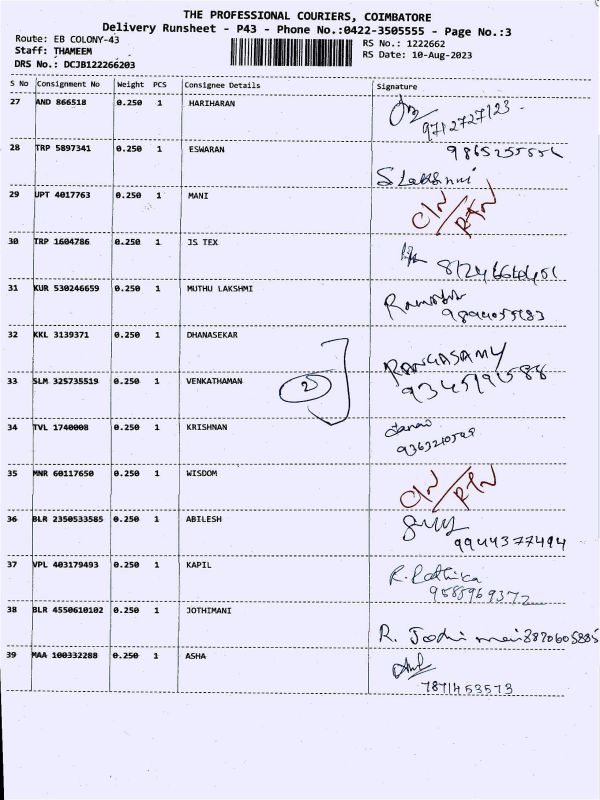 THE PROFESSIONAL COURIERS, COIMBATORE
Delivery Runsheet - P43 - Phone No.:0422-3505555 - Page No.:3
Route: EB COLONY-43
RS No.: 1222662
Staff: THAMEEM
RS Date: 10-Aug-2023
DRS No.: DCJB122266203
S No Consignment No Weight PCS Consignee Details Signature
27 AND 866518 0.250 1 HARIHARAN
9712727123
28 TRP 5897341 0.250 1 ESWARAN
S Lakshmi
29 UPT 4017763 0.250 1 MANI
30 TRP 1604786 0.250 1 JS TEX
31 KUR 530246659 0.250 1 MUTHU LAKSHMI
32 KKL 3139371 0.250 1 DHANASEKAR
RANGASAMY
33 SLM 325735519 0.250 1 VENKATHAMAN
2
34 TVL 1740008 0.250 1 KRISHNAN
35 MNR 60117650 0.250 1 WISDOM
36 BLR 2350533585 0.250 1 ABILESH
9944377494
37 VPL 403179493 0.250 1 KAPIL
R. Rathika
9585969372
38 BLR 4550610102 0.250 1 JOTHIMANI
39 MAA 100332288 0.250 1 ASHA
7871453573